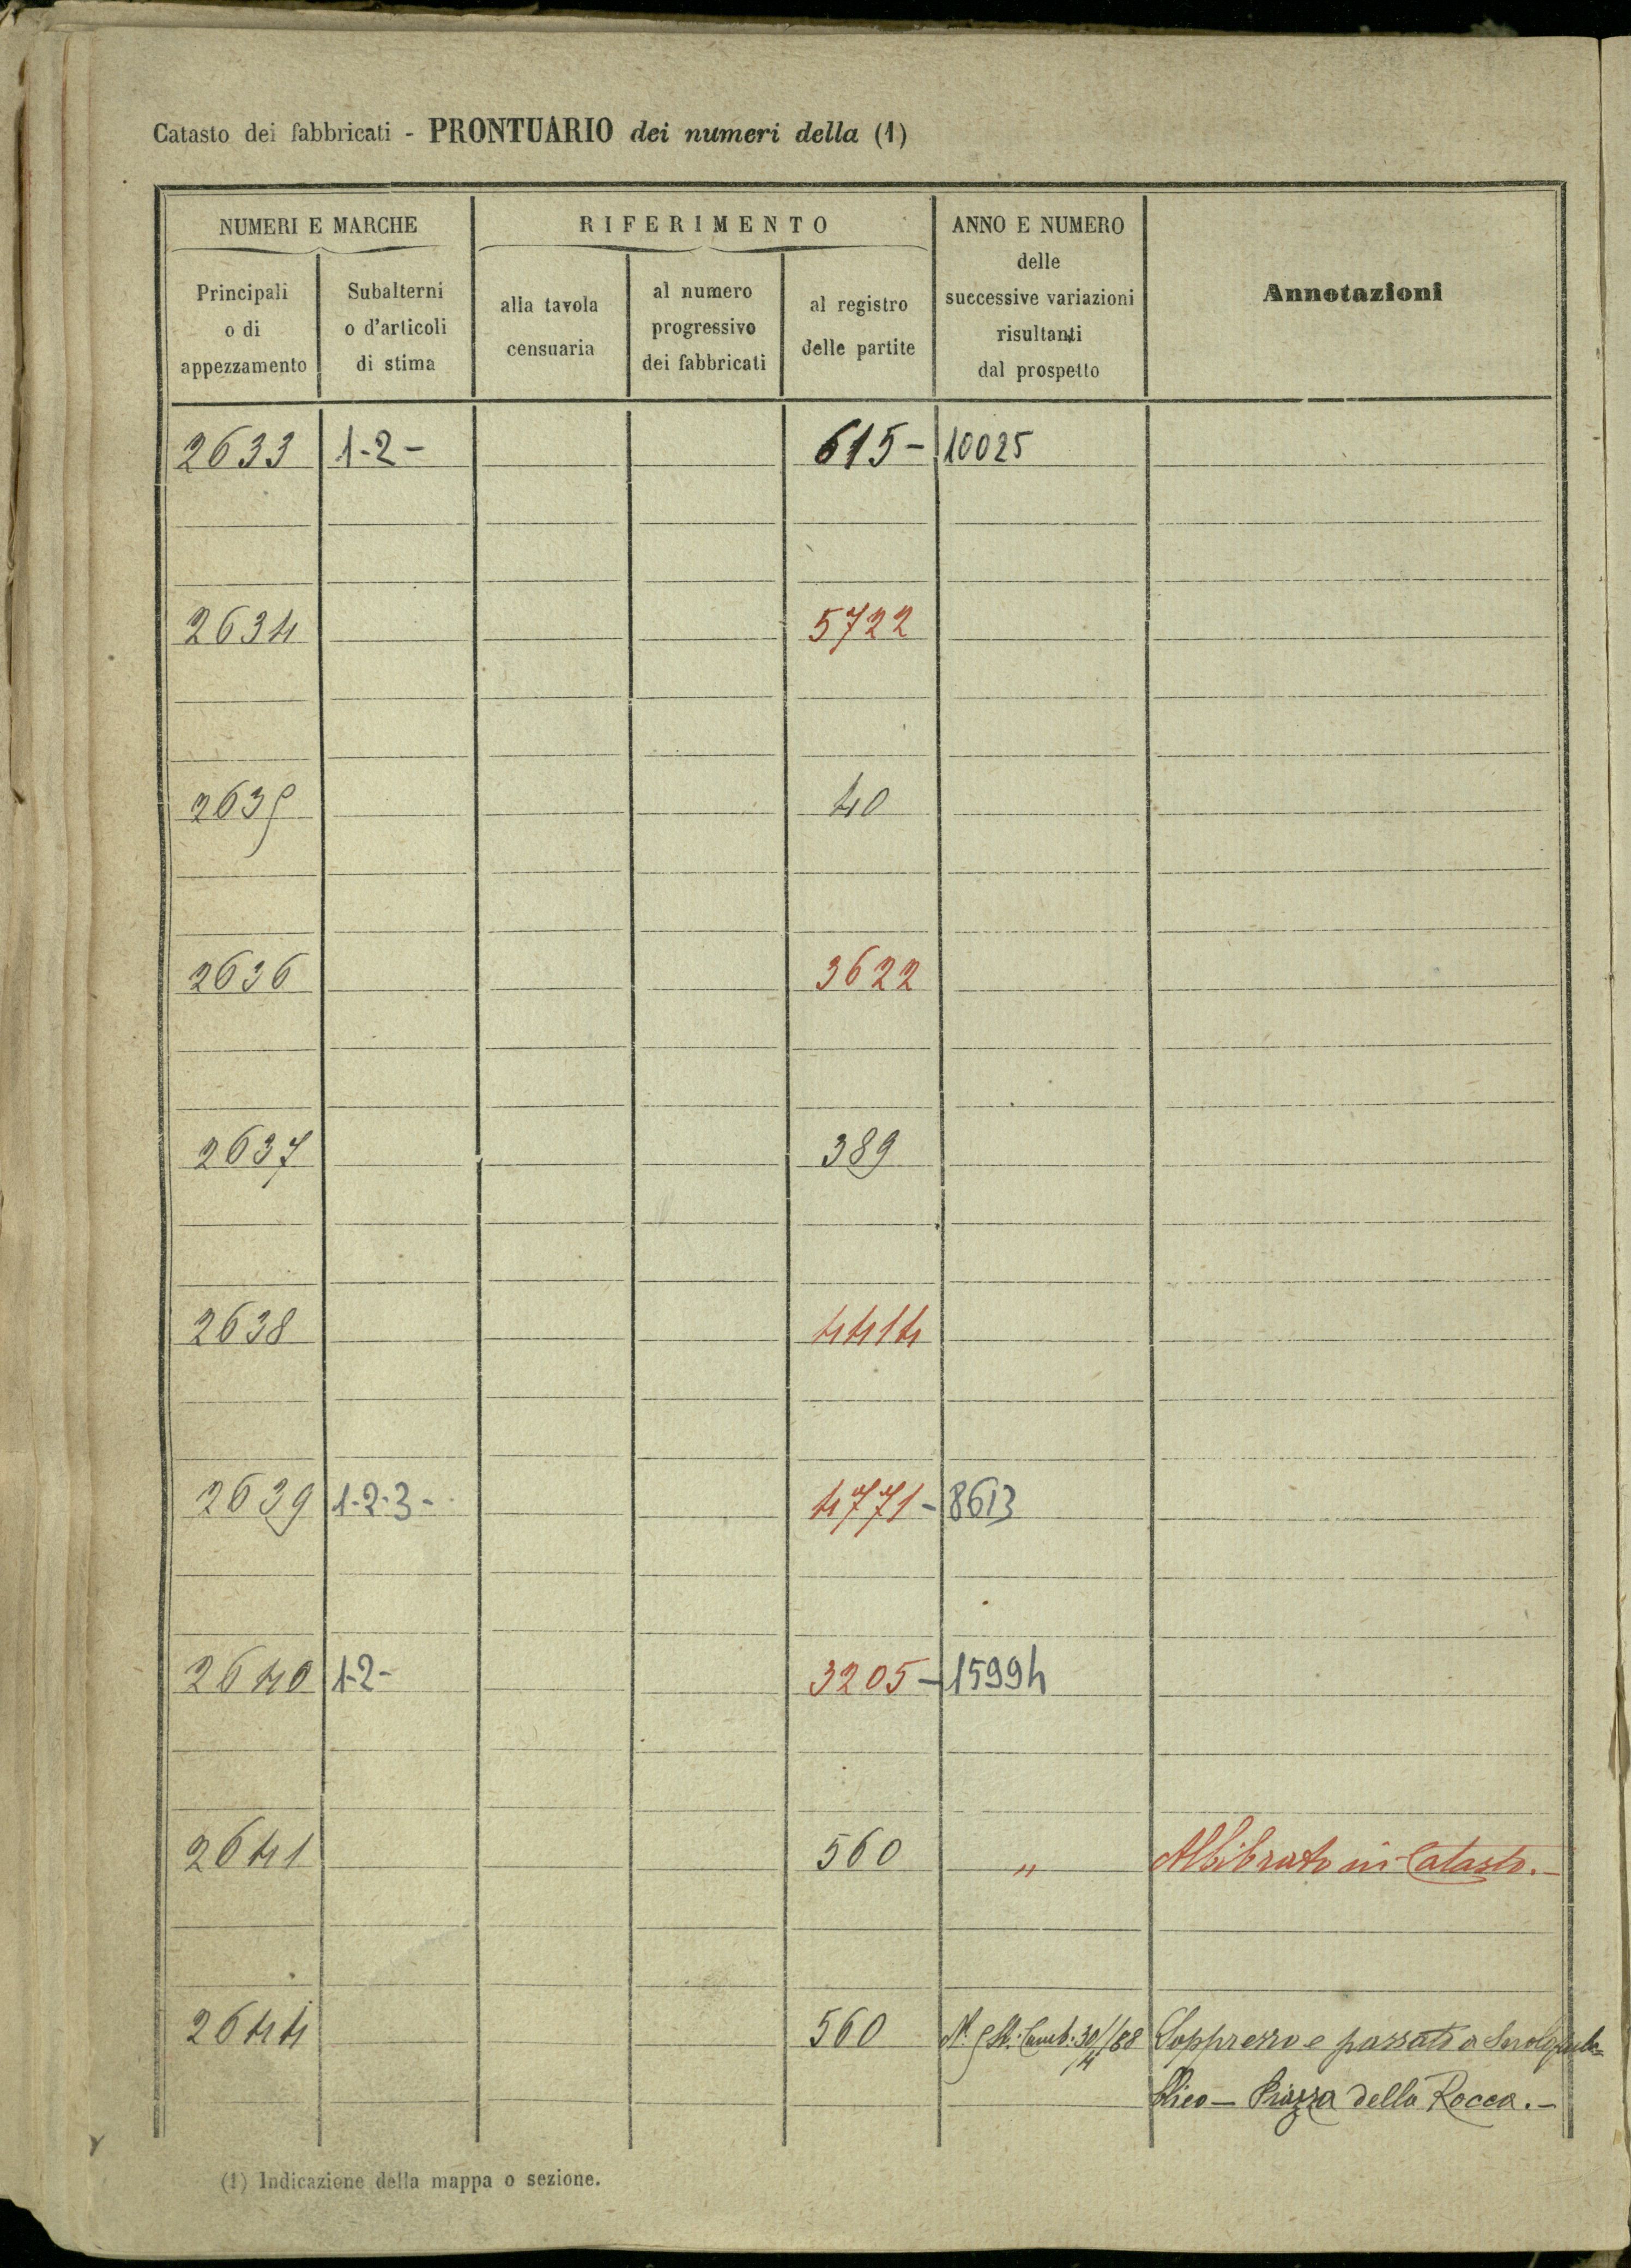 Catasto dei fabbricati - PRONTUARIO dei numeri della (1)
NUMERI E MARCHE
RIFERIMENTO
ANNO E NUMERO
delle
successive variazioni
risultanti
dal prospetto
Annotazioni
Principali
o di
appezzamento
Subalterni
o d'articoli
di stima
alla tavola
censuaria
al numero
progressivo
dei fabbricati
al registro
delle partite
2633 1-2- 615- 10025
2634 5722
2635 40
2636 3622
2637 389
2638 4414
2639 1-2-3- 4771- 8613
2640 1-2- 3205- 15994
2641 560 " Allibrato in Catasto.-
2644 560 Soppresso e passato a Suolo pub-
blico - Piazza della Rocca.-
(1) Indicazione della mappa o sezione.